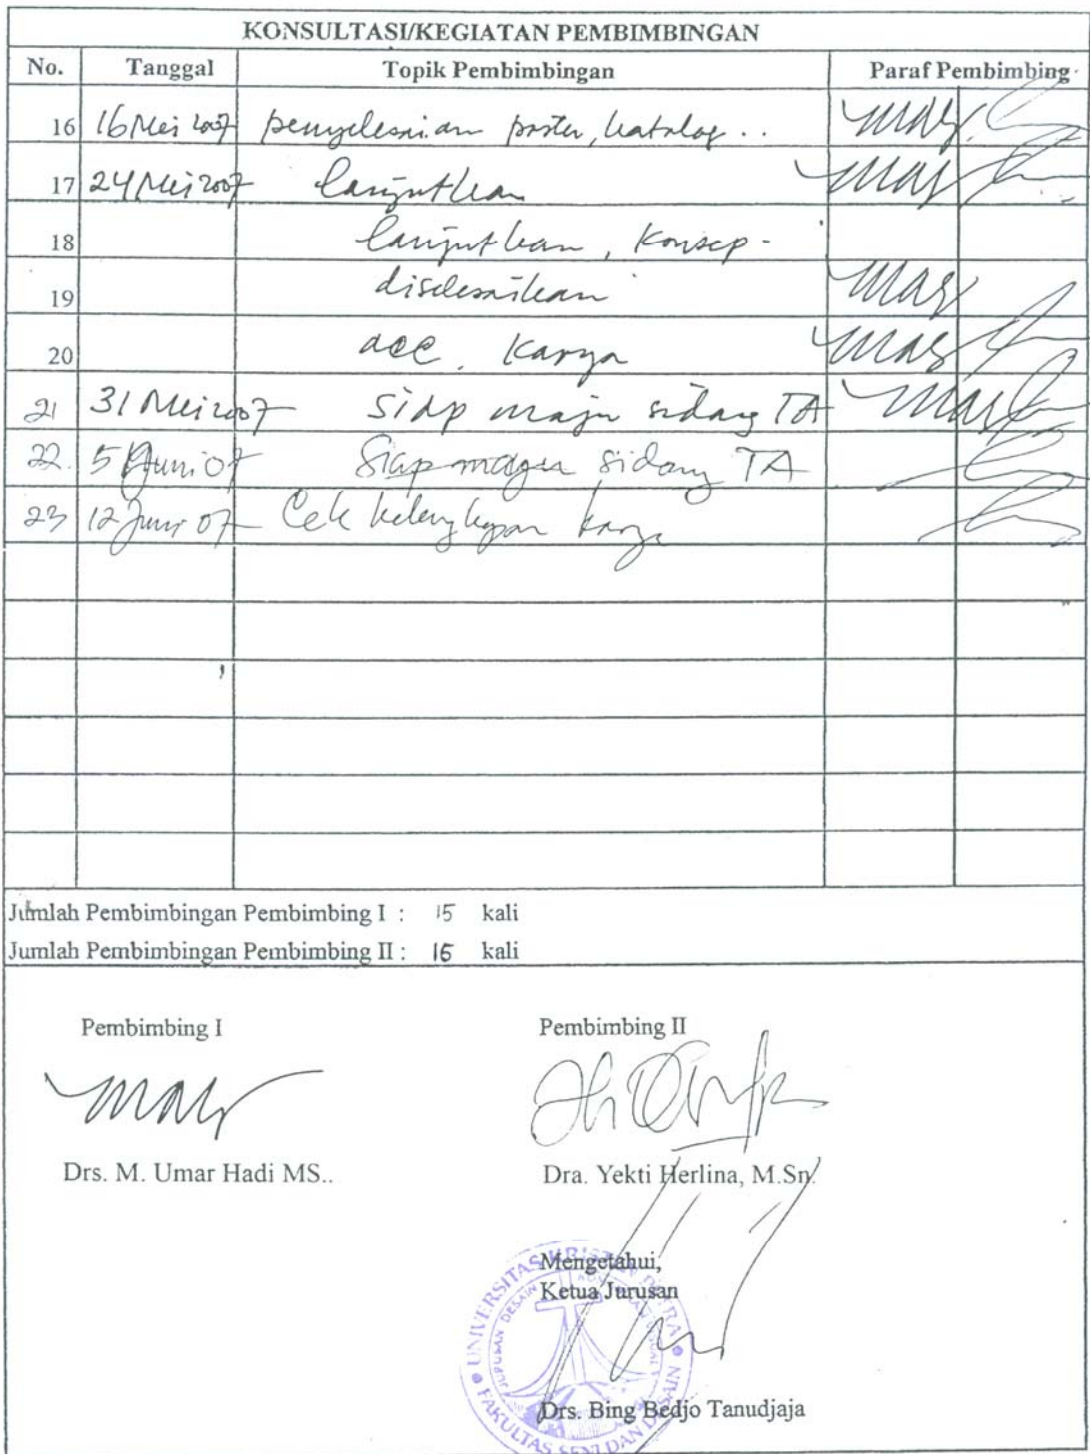 KONSULTASI/KEGIATAN PEMBIMBINGAN
No. Tanggal Topik Pembimbingan Paraf Pembimbing
16 16 Mei 2007 penyelesaian poster, katalog ..
17 24 Mei 2007 lanjutkan
18 lanjutkan, konsep -
19 diselesaikan
20 acc. karya
21 31 Mei 2007 siap maju sidang TA
22. 5 Juni 07 Siap maju sidang TA
23 12 Juni 07 Cek kelengkapan karya
Jumlah Pembimbingan Pembimbing I : 15 kali
Jumlah Pembimbingan Pembimbing II : 15 kali
Pembimbing I Pembimbing II
Drs. M. Umar Hadi MS.. Dra. Yekti Herlina, M.Sn.
Mengetahui,
Ketua Jurusan
Drs. Bing Bedjo Tanudjaja
UNIVERSITAS KRISTEN PETRA
JURUSAN DESAIN KOMUNIKASI VISUAL
FAKULTAS SENI DAN DESAIN